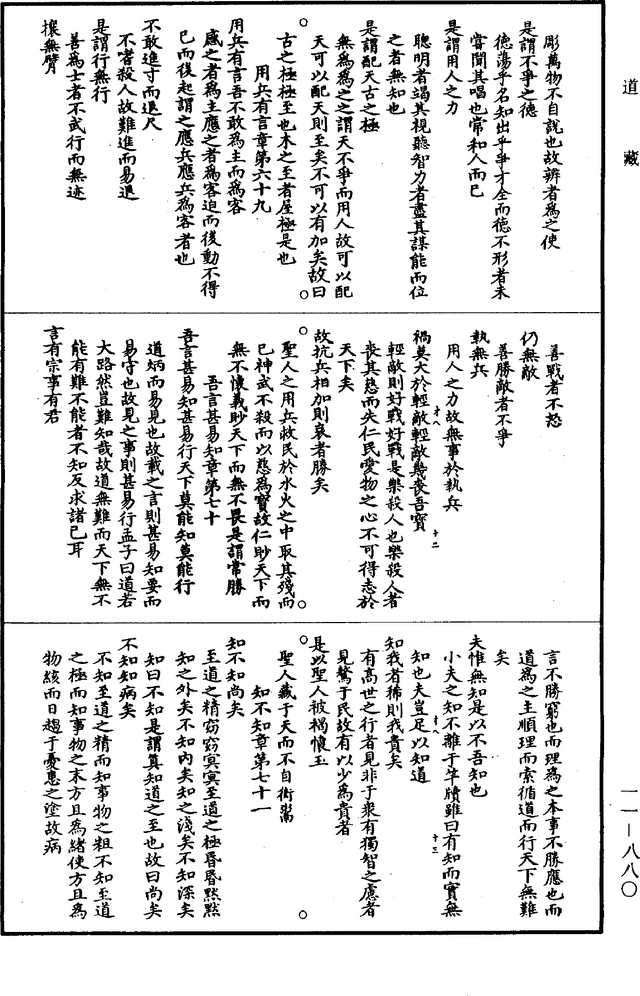 道藏
彫萬物不自說也故辨者爲之使
是謂不爭之德
德蕩乎名知出乎爭才全而德不形者未
嘗聞其唱也常和人而已
是謂用人之力
聰明者竭其視聽智力者盡其謀能而位
之者無知也
是謂配天古之極
無爲爲之之謂天不爭而用人故可以配
天可以配天則至矣不可以有加矣故曰
古之極極至也木之至者屋極是也
用兵有言章第六十九
用兵有言吾不敢爲主而爲客
感之者爲主應之者爲客迫而後動不得
已而後起謂之應兵應兵爲客者也
不敢進寸而退尺
不嗜殺人故難進而易退
是謂行無行
善爲士者不武行而無迹
攘無臂
善戰者不怒
仍無敵
善勝敵者不爭
執無兵
用人之力故無事於執兵
禍莫大於輕敵輕敵幾喪吾寶
輕敵則好戰好戰是樂殺人也樂殺人者
喪其慈而失仁民愛物之心不可得志於
天下矣
故抗兵相加則哀者勝矣
聖人之用兵救民於水火之中取其殘而
已神武不殺而以慈爲寶故仁眇天下而
無不懷義眇天下而無不畏是謂常勝
吾言甚易知章第七十
吾言甚易知甚易行天下莫能知莫能行
道炳而易見也故載之言則甚易知要而
易守也故見之事則甚易行孟子曰道若
大路然豈難知哉故道無難而天下無不
能有難不能者不知反求諸己耳
言有宗事有君
言不勝窮也而理爲之本事不勝應也而
道爲之主順理而索循道而行天下無難
矣
夫惟無知是以不吾知也
小夫之知不離于竿牘雖曰有知而實無
知也夫豈足以知道
知我者稀則我貴矣
有高世之行者見非于衆有獨智之慮者
見驁于民故有以少爲貴者
是以聖人被褐懷玉
聖人藏于天而不自衒鬻
知不知章第七十一
知不知尚矣
至道之精窈窈冥冥至道之極昏昏默默
知之外矣不知內矣知之淺矣不知深矣
知曰不知是謂眞知道之至也故曰尚矣
不知知病矣
不知至道之精而知事物之粗不知至道
之極而知事物之末方且爲緒使方且爲
物絯而日趨于憂患之塗故病
一一—八八〇